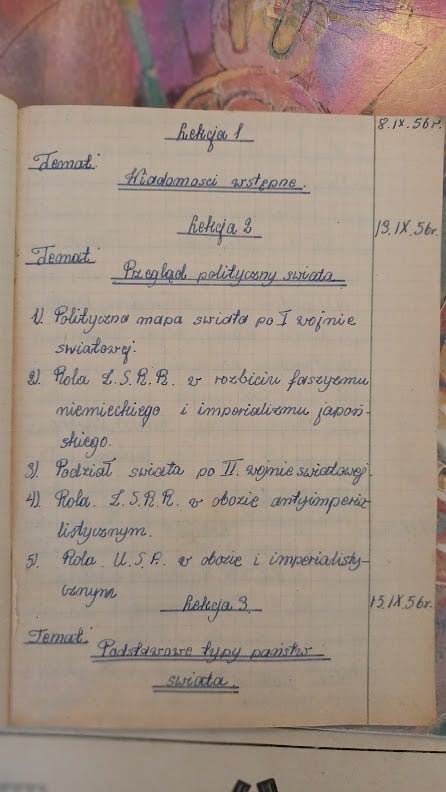 Lekcja 1
8.IX.56r.
Temat:
Wiadomości wstępne.
Lekcja 2
13.IX.56r.
Temat:
Przegląd polityczny świata
1). Polityczna mapa świata po I wojnie
światowej.
2). Rola Z.S.R.R. w rozbiciu faszyzmu
niemieckiego i imperializmu japoń-
skiego.
3). Podział świata po II. wojnie światowej.
4). Rola Z.S.R.R. w obozie antyimperia-
listycznym.
5). Rola U.S.A. w obozie i imperialisty-
cznym
Lekcja 3.
15.IX.56r.
Temat:
Podstawowe typy państw
świata.